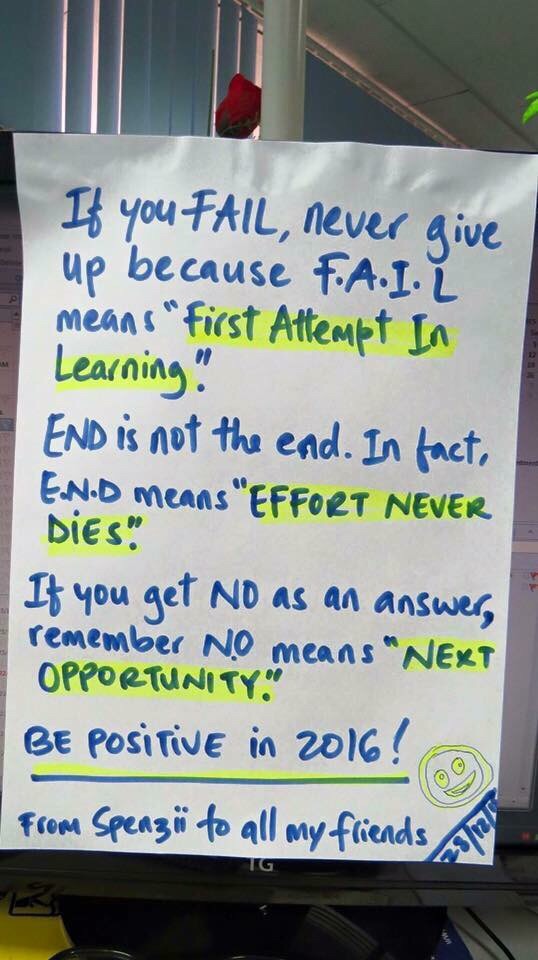 If you FAIL, never give
up because F.A.I.L
means "First Attempt In
Learning."
END is not the end. In fact,
E.N.D means "EFFORT NEVER
DIES."
If you get NO as an answer,
remember N.O means "NEXT
OPPORTUNITY."
BE POSITIVE in 2016!
From Spenzii to all my friends